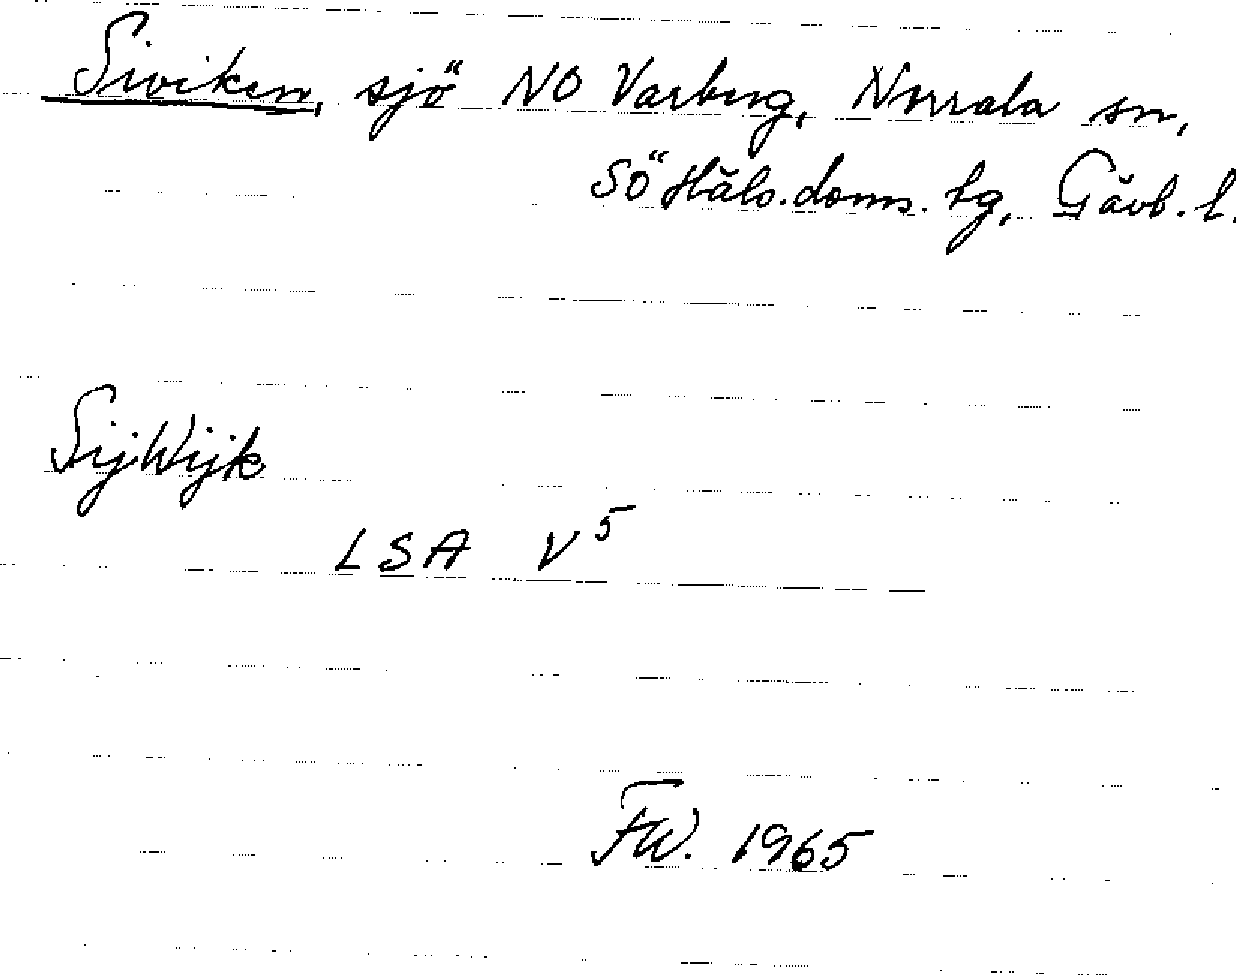 Siviken, sjö NO Varberg, Norrala sn,
SÖ Häls.doms. tg, Gävb. l.
SijWijk
LSA V5
FW. 1965